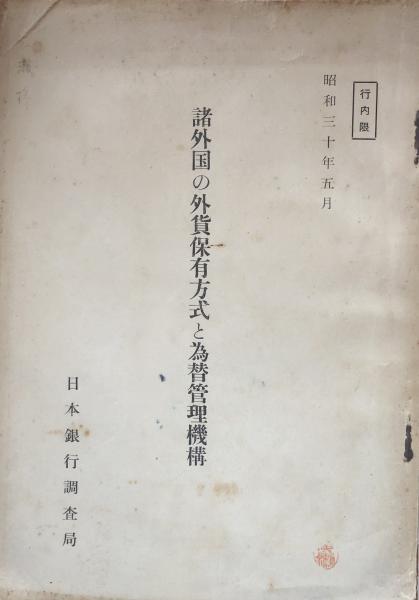 行内限
昭和三十年五月
諸外国の外貨保有方式と為替管理機構
日本銀行調査局